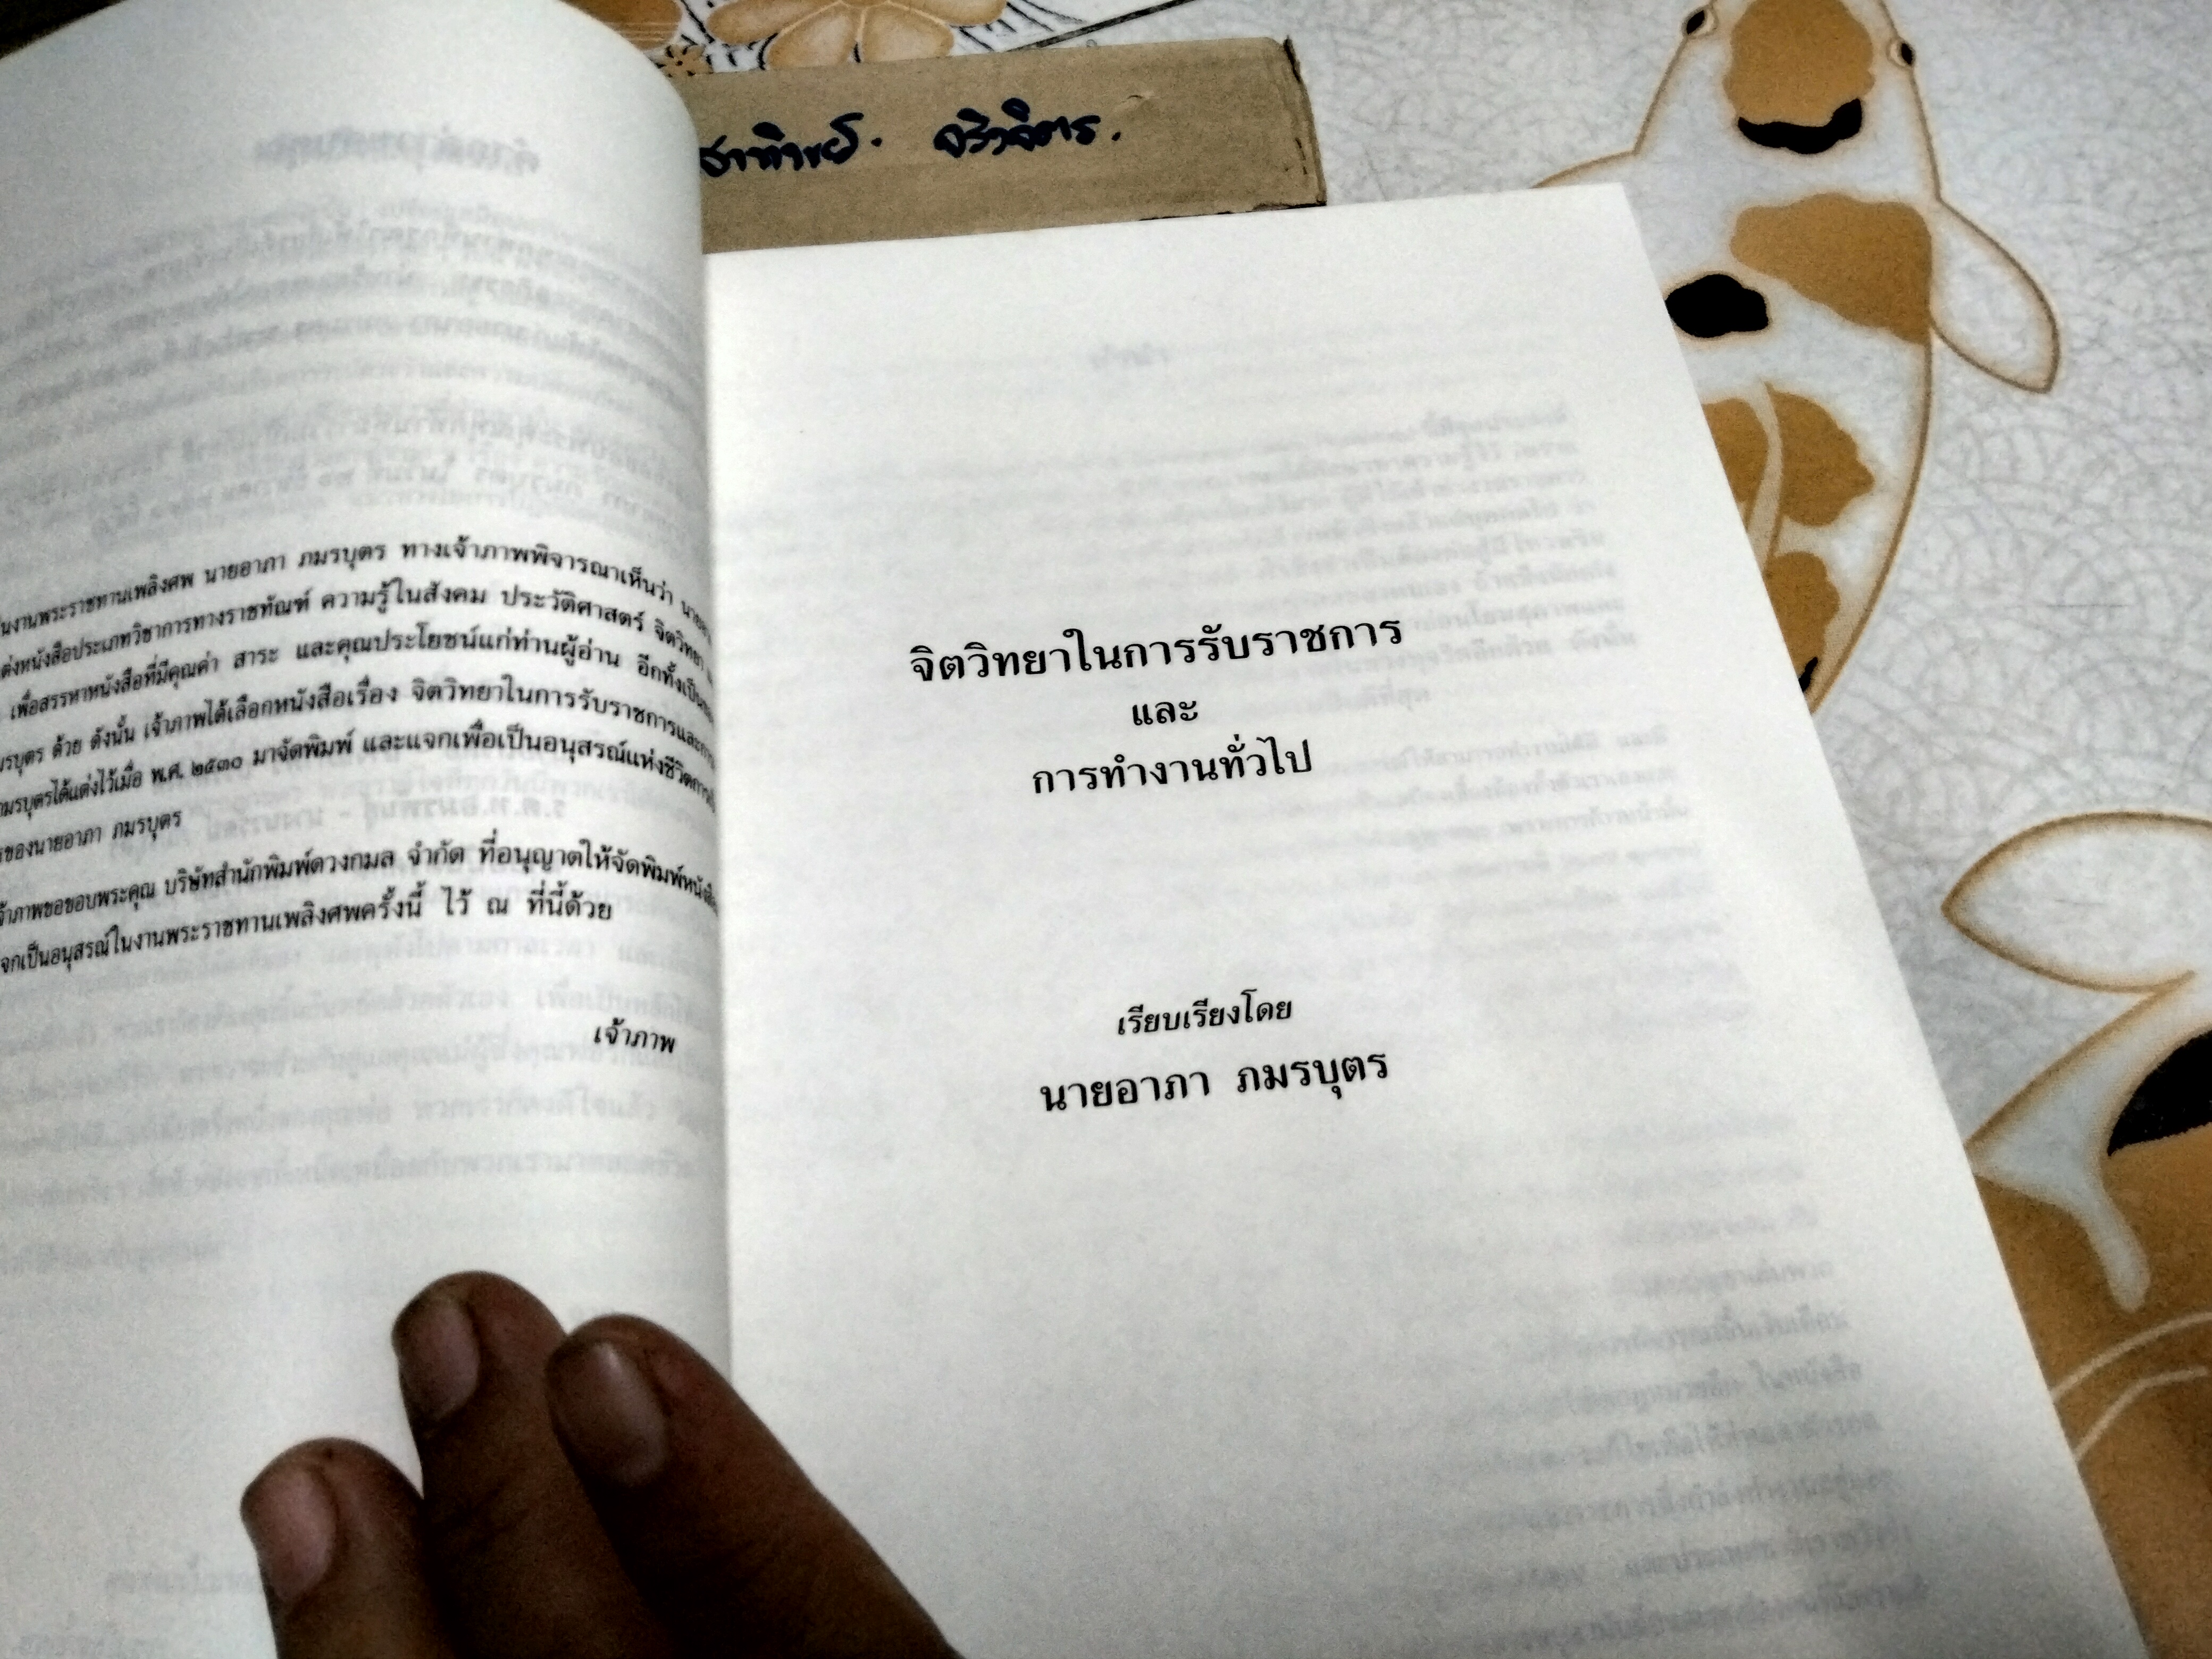 นงานพระราชทานเพลิงศพ นายอาภา ภมรบุตร ทางเจ้าภาพพิจารณาเห็นว่า
ต่งหนังสือประเภทวิชาการทางราชทัณฑ์ ความรู้ในสังคม ประวัติศาสตร์ จิตวิทยา
เพื่อสรรหาหนังสือที่มีคุณค่า สาระ และคุณประโยชน์แก่ท่านผู้อ่าน อีกทั้งเป็น
มรบุตร ด้วย ดังนั้น เจ้าภาพได้เลือกหนังสือเรื่อง จิตวิทยาในการรับราชการและการ
มรบุตรได้แต่งไว้เมื่อ พ.ศ. ๒๕๓๐ มาจัดพิมพ์ และแจกเพื่อเป็นอนุสรณ์แห่งชีวิต
ของนายอาภา ภมรบุตร
จ้าภาพขอขอบพระคุณ บริษัทสำนักพิมพ์ดวงกมล จำกัด ที่อนุญาตให้จัดพิมพ์หนังสือ
จกเป็นอนุสรณ์ในงานพระราชทานเพลิงศพครั้งนี้ ไว้ ณ ที่นี้ด้วย
เจ้าภาพ
จิตวิทยาในการรับราชการ
และ
การทำงานทั่วไป
เรียบเรียงโดย
นายอาภา ภมรบุตร